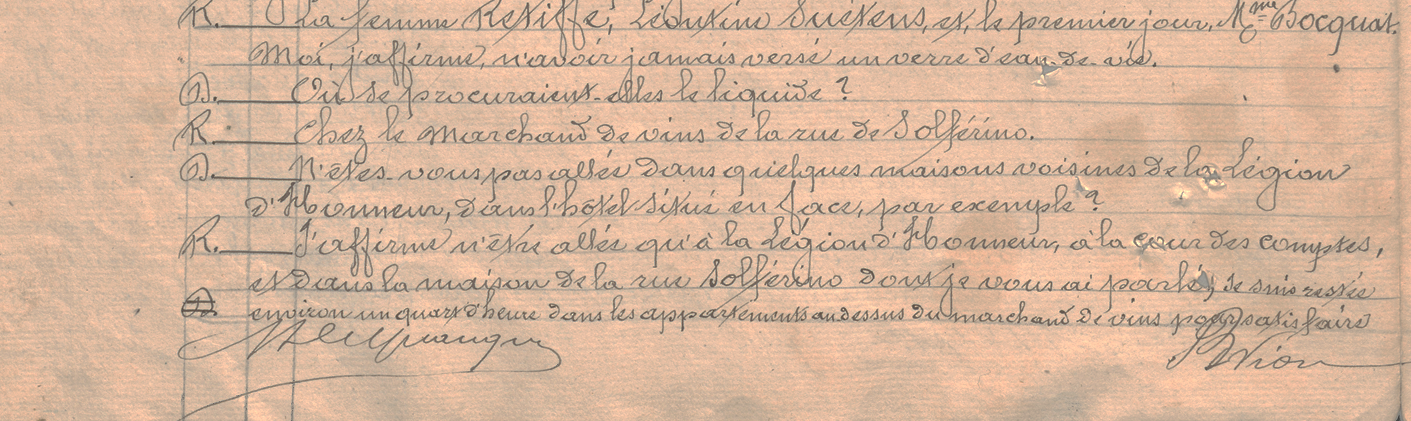 R. La femme Retiffé, Léontine Suétens, et, le premier jour, Mme Bocquat.
Moi, j'affirme, n'avoir jamais versé un verre d'eau-de-vie.
D. Où se procuraient-elles le liquide ?
R. Chez le Marchand de vins de la rue de Solférino.
D. N'êtes-vous pas allée dans quelques maisons voisines de la Légion
d'Honneur, dans l'hôtel situé en face, par exemple ?
R. J'affirme n'être allée qu'à la Légion d'Honneur, à la cour des comptes,
et dans la maison de la rue Solférino dont je vous ai parlé; Je suis restée
environ un quart d'heure dans les appartements au dessus du marchand de vins pour satisfaire